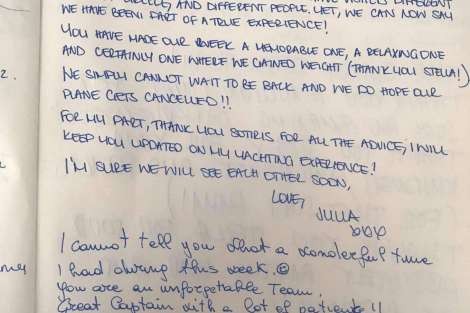 AND DIFFERENT PEOPLE. YET, WE CAN NOW SAY
WE HAVE BEEN PART OF A TRUE EXPERIENCE!
YOU HAVE MADE OUR WEEK A MEMORABLE ONE, A RELAXING ONE
AND CERTAINLY ONE WHERE WE GAINED WEIGHT (THANK YOU STELLA!)
2.
WE SIMPLY CANNOT WAIT TO BE BACK AND WE DO HOPE OUR
PLANE GETS CANCELLED!!
FOR MY PART, THANK YOU SOTIRIS FOR ALL THE ADVICE, I WILL
KEEP YOU UPDATED ON MY YACHTING EXPERIENCE!
I'M SURE WE WILL SEE EACH OTHER SOON,
LOVE,
JULIA
I cannot tell you what a wonderful time
I had during this week. ☺
You are an unforgetable Team.
Great Captain with a lot of patients!!